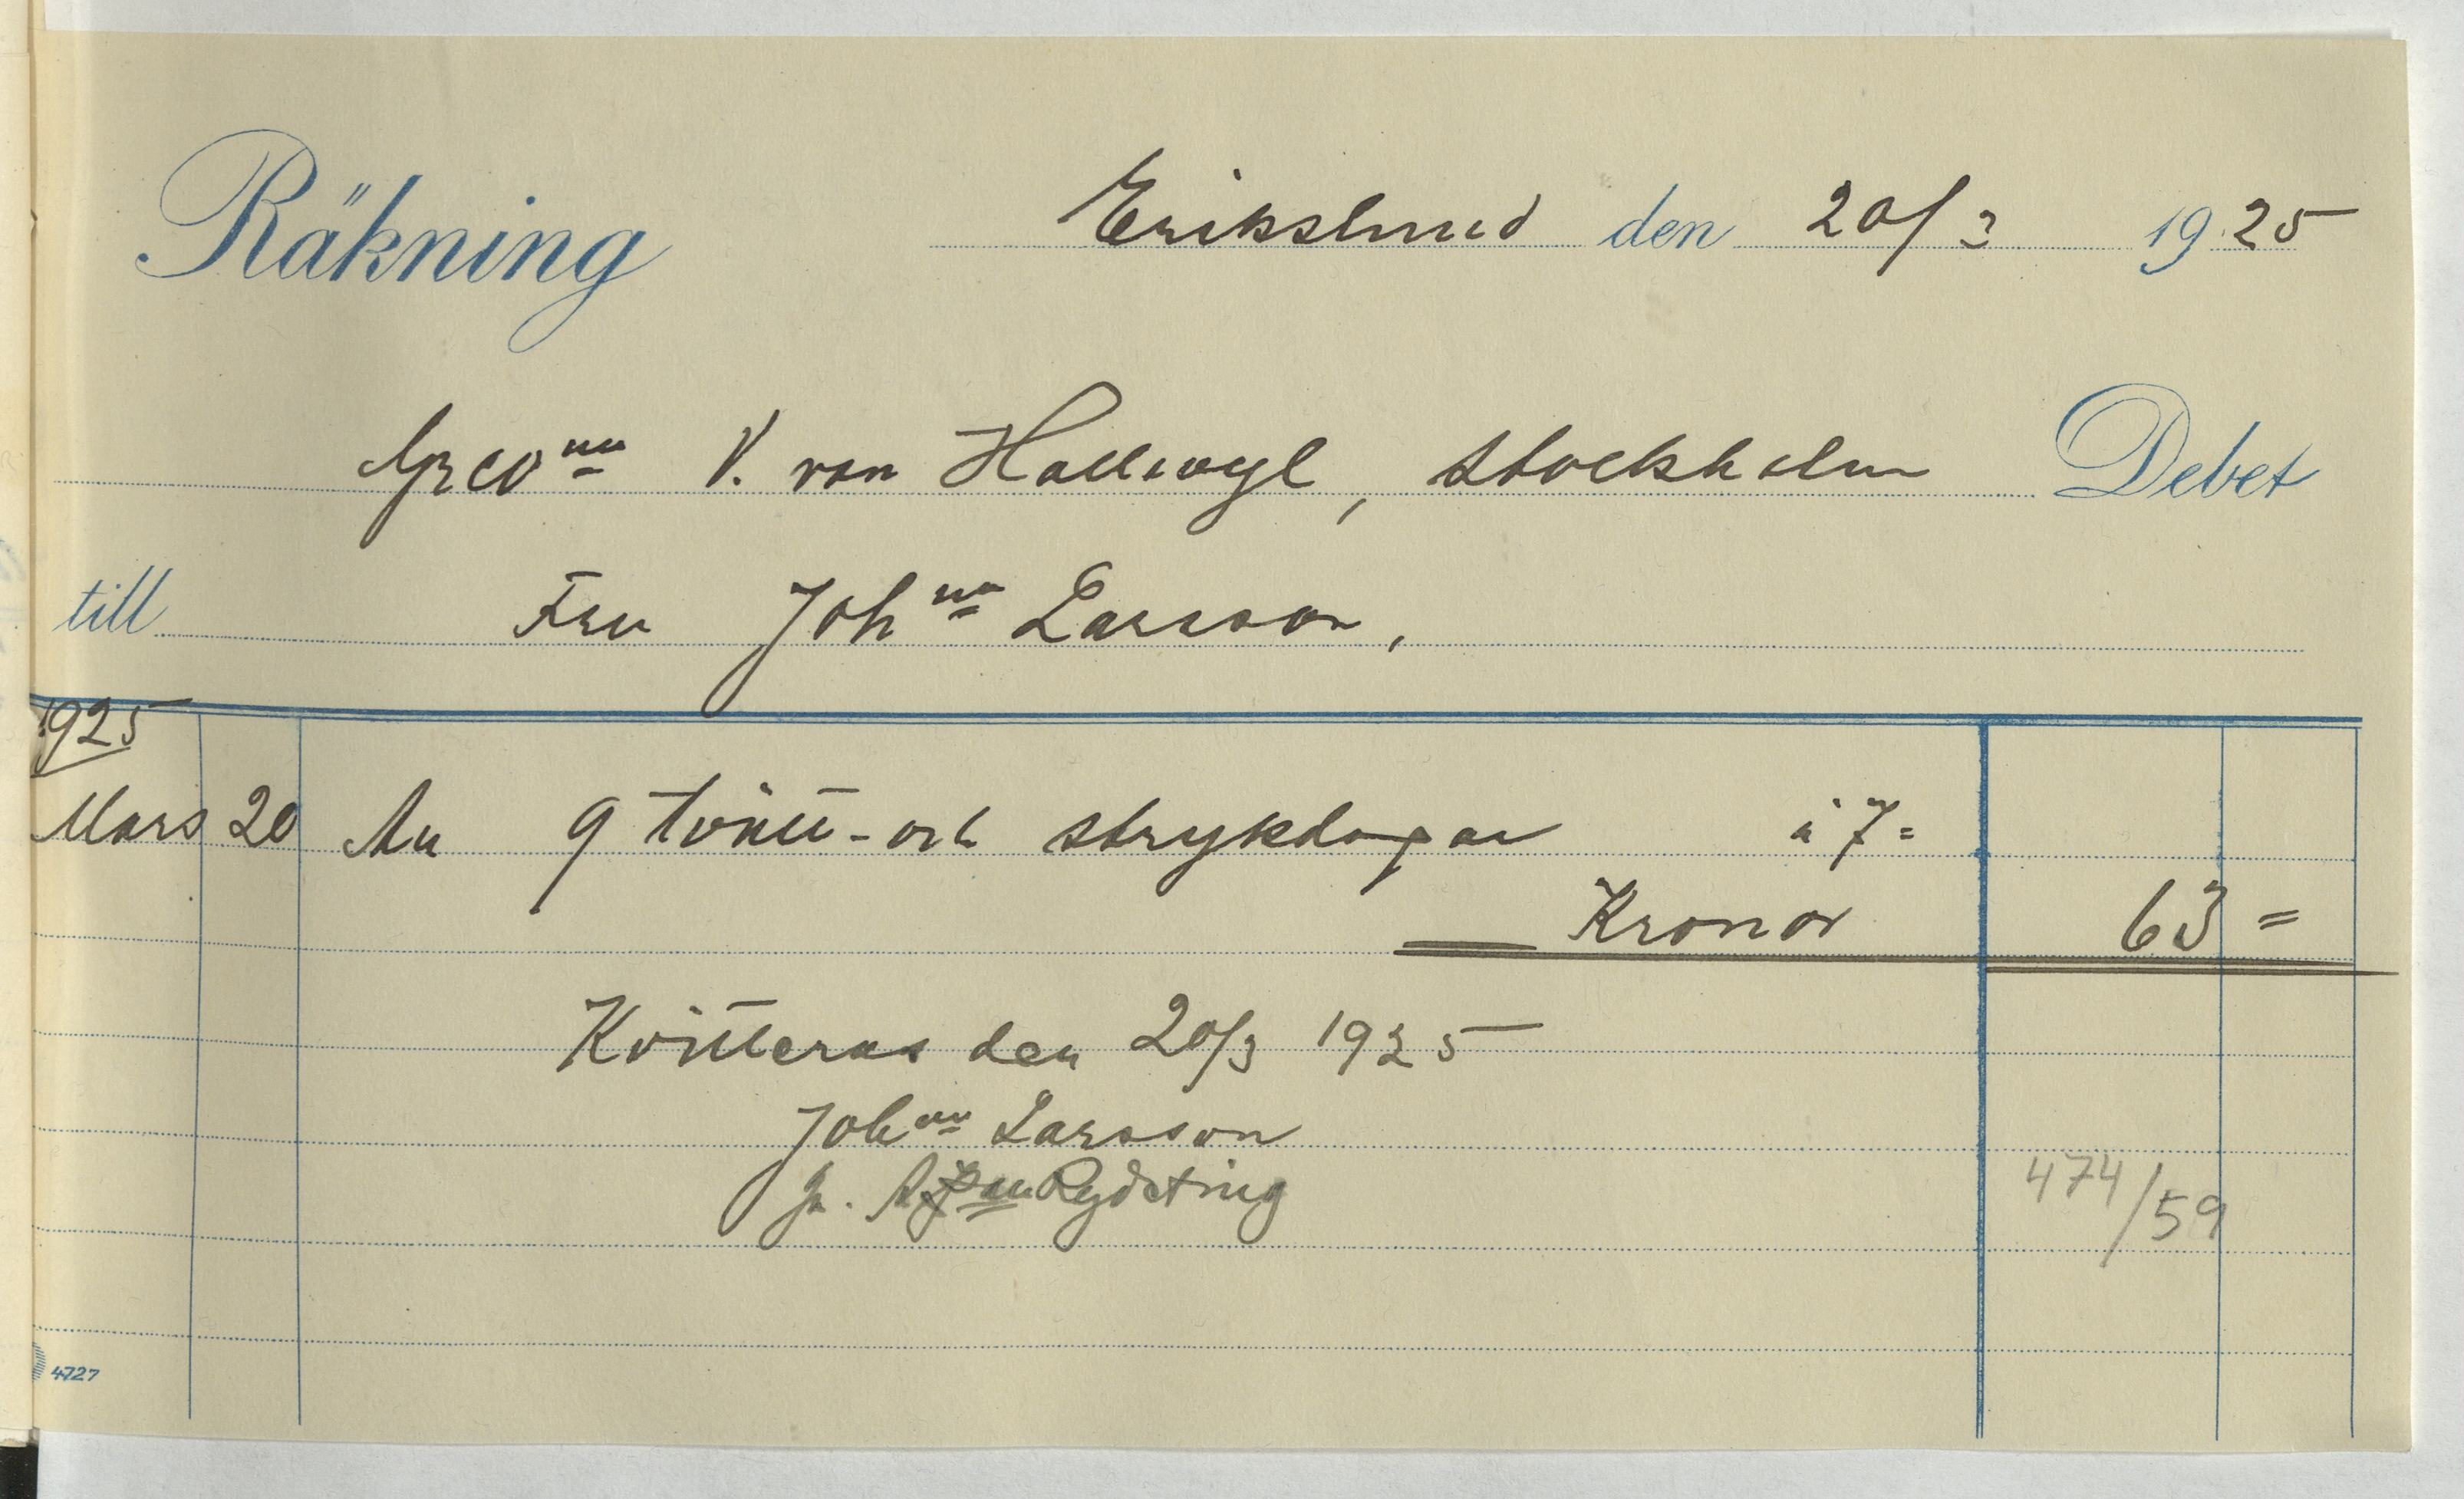 Räkning Erikslund den 20/3 1925
Grevnn V. von Hallwyl, Stockholm Debet
till Fru Johnn Larsson,
1925
Mars 20 An 9 tvätt- och strykdagar à 7=
Kronor 63=
Kvitteras den 20/3 1925
Johnn Larsson
Rydeting
474/59
4727